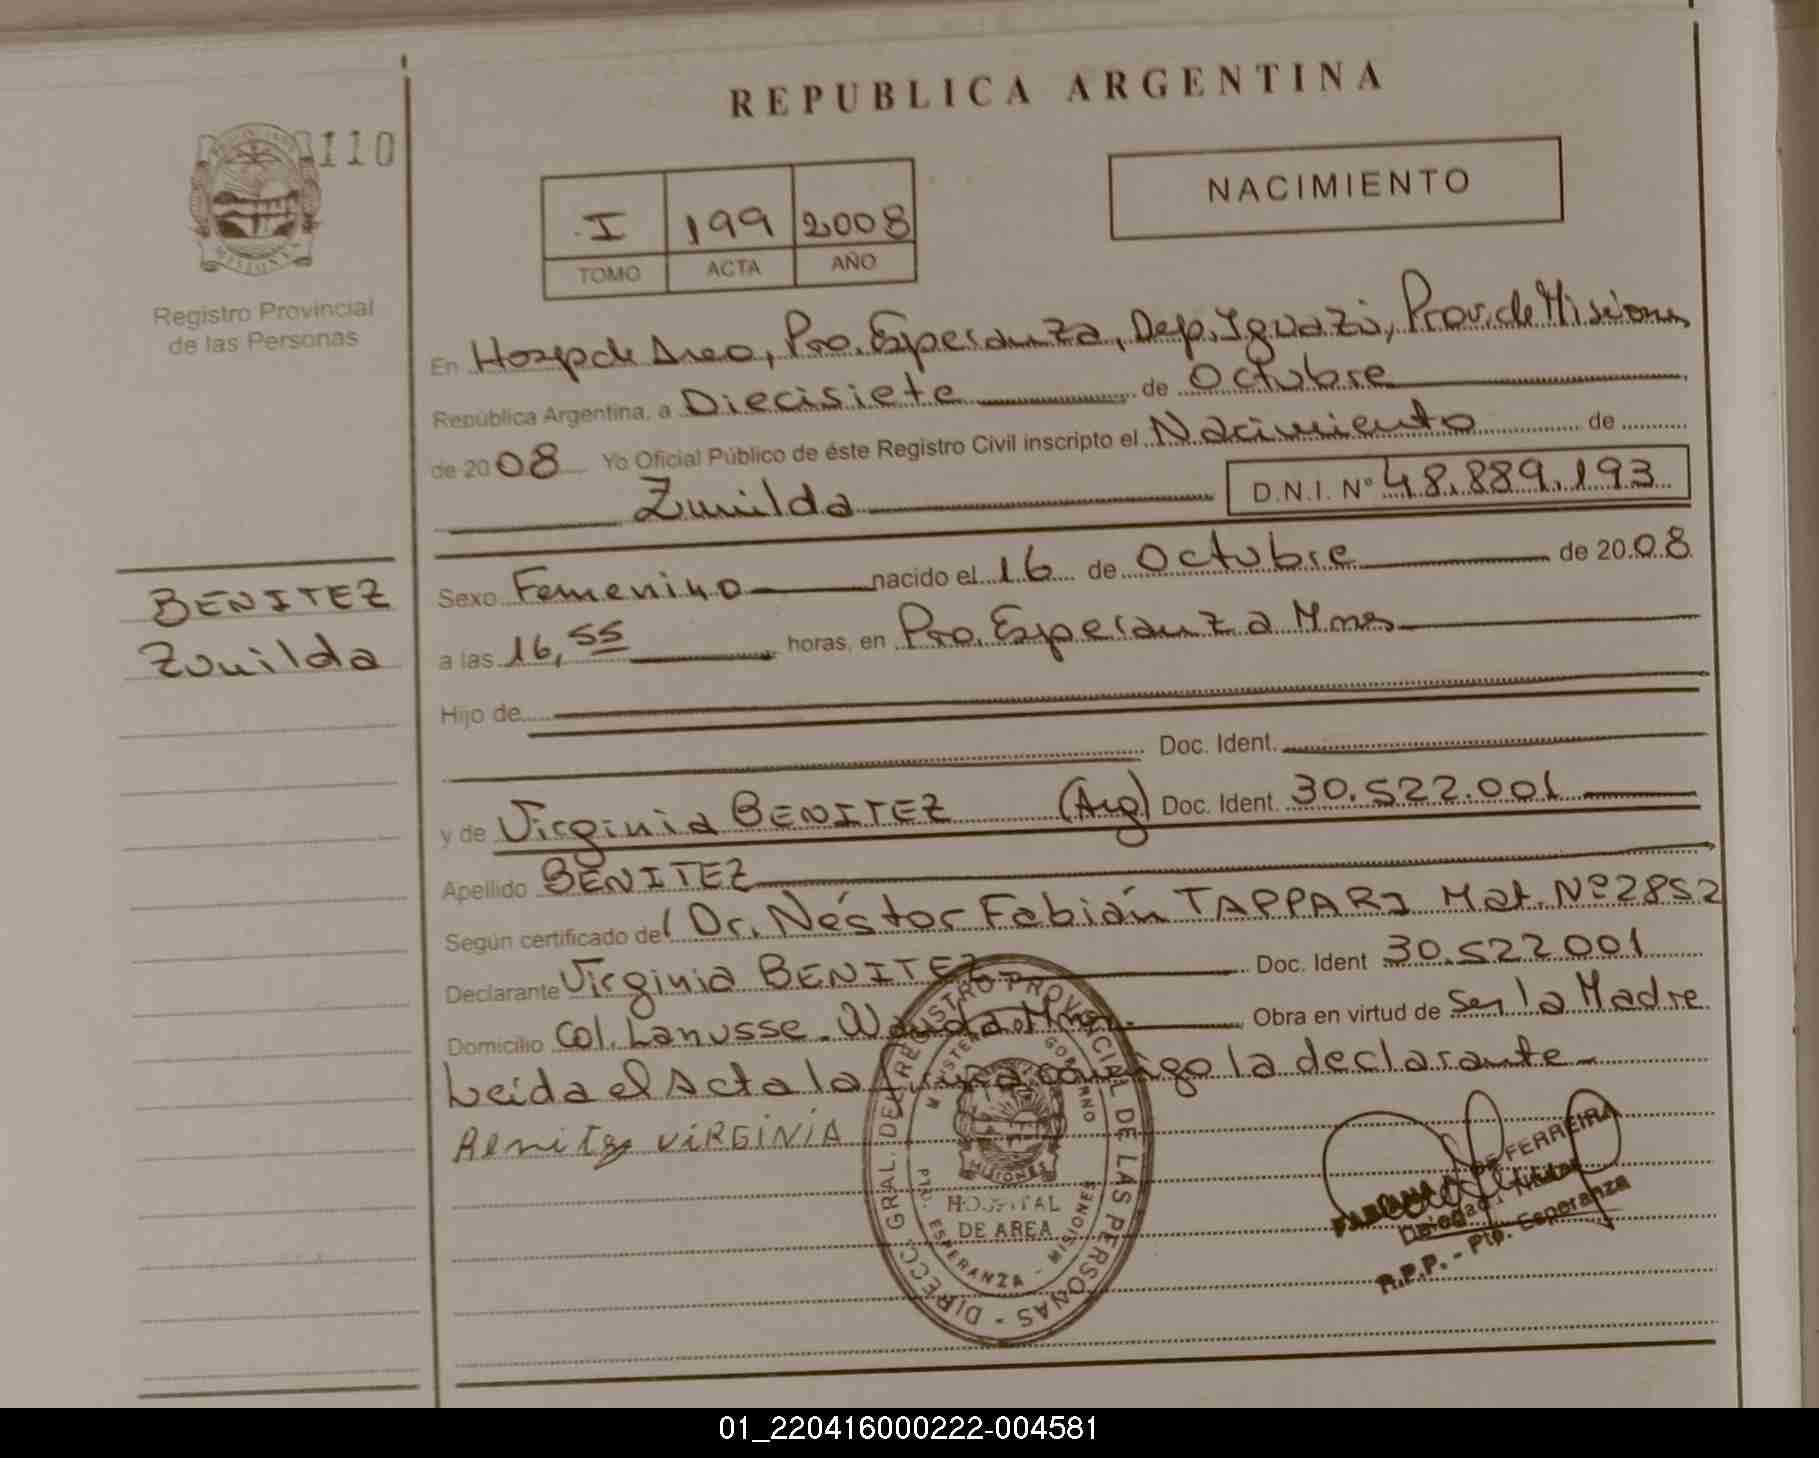 REPUBLICA ARGENTINA
110
NACIMIENTO
I 199 2008
TOMO ACTA AÑO
Registro Provincial
de las Personas
En Hosp de Area, Pto. Esperanza, Dep. Iguazú, Prov. de Misiones
República Argentina, a Diecisiete de Octubre
de 2008 Yo Oficial Público de éste Registro Civil inscripto el Nacimiento de
Zunilda D.N.I. Nº 48.889.193
BENITEZ
Zunilda
Sexo Femenino nacido el 16 de Octubre de 2008
a las 16,55 horas, en Pto. Esperanza Mnes
Hijo de
Doc. Ident.
y de Virginia BENITEZ (Arg) Doc. Ident. 30.522.001
Apellido BENITEZ
Según certificado del Dr. Néstor Fabián TAPPARI Mat. Nº 2852
Declarante Virginia BENITEZ Doc. Ident 30.522.001
Domicilio Col. Lanusse. Wanda. Mnes. Obra en virtud de Ser la Madre
Leida el Acta la firma conmigo la declarante
Benitez VIRGINIA
DIRECC. GRAL. DEL REGISTRO PROVINCIAL DE LAS PERSONAS
MINISTERIO GOBIERNO
MISIONES
HOSPITAL
DE AREA
PTO. ESPERANZA - MISIONES
DE FERREIRA
Titular
R.P.P. - Pto. Esperanza
01_220416000222-004581